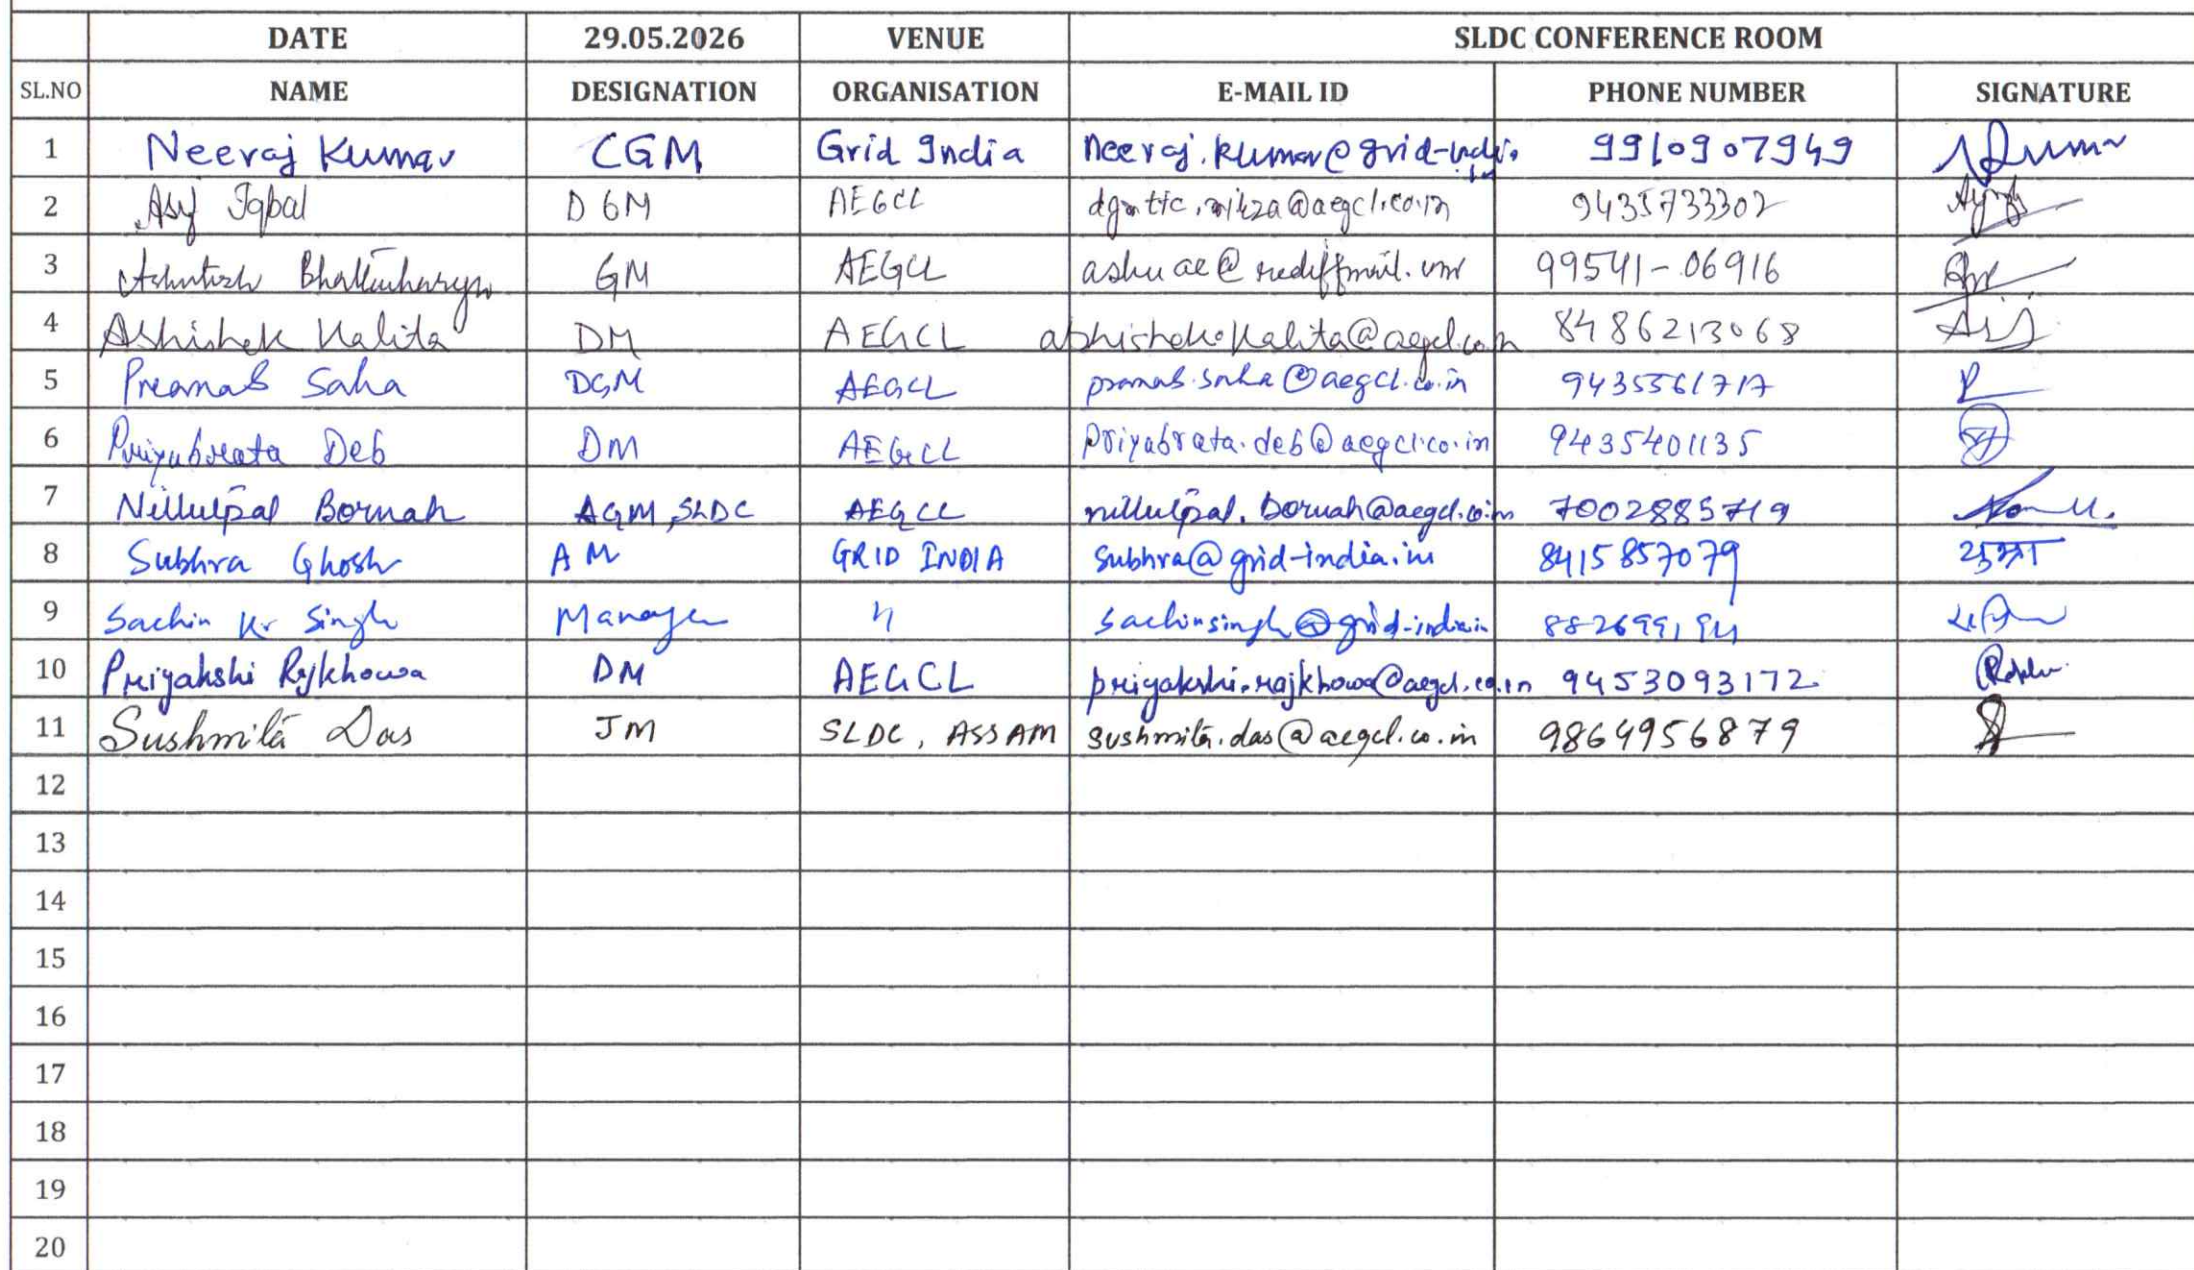 DATE 29.05.2026 VENUE SLDC CONFERENCE ROOM
SL.NO NAME DESIGNATION ORGANISATION E-MAIL ID PHONE NUMBER SIGNATURE
1 Neeraj Kumar CGM Grid India neeraj.kumar@grid-india.in 9910907949
2 Asif Iqbal DGM AEGCL 9435733302
3 Ashutosh Bhattacharya GM AEGCL ashuae@rediffmail.com 99541-06916
4 Abhishek Kalita DM AEGCL abhishek.kalita@aegcl.co.in 8486213068
5 Pranab Saha DGM AEGCL pranab.saha@aegcl.co.in 9435561717
6 Priyabrata Deb DM AEGCL priyabrata.deb@aegcl.co.in 9435401135
7 Nillutpal Boruah AGM, SLDC AEGCL nillutpal.boruah@aegcl.co.in 7002885719
8 Subhra Ghosh AM GRID INDIA subhra@grid-india.in 8415857079
9 Sachin Kr Singh Manager 〃 sachinsingh@grid-india.in
10 Priyakshi Rajkhowa DM AEGCL priyakshi.rajkhowa@aegcl.co.in 9453093172
11 Sushmita Das JM SLDC, ASSAM sushmita.das@aegcl.co.in 9864956879
12
13
14
15
16
17
18
19
20